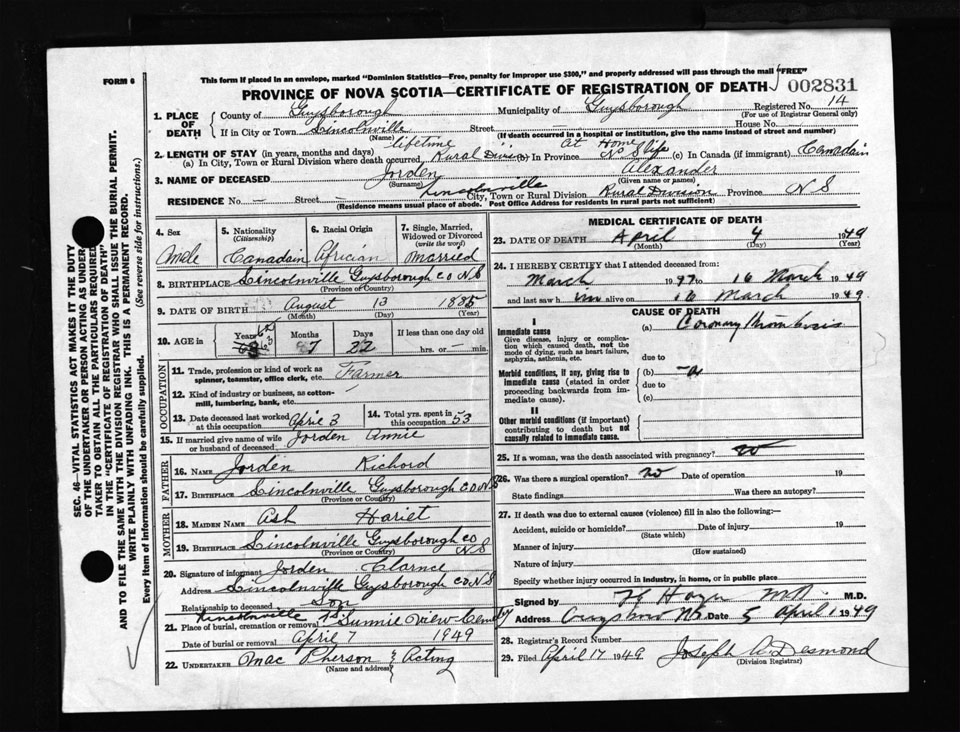 FORM 6
This form if placed in an envelope, marked "Dominion Statistics—Free, penalty for improper use $300," and properly addressed will pass through the mail "FREE"
PROVINCE OF NOVA SCOTIA—CERTIFICATE OF REGISTRATION OF DEATH 002831
SEC. 46—VITAL STATISTICS ACT MAKES IT THE DUTY
OF THE UNDERTAKER OR PERSON ACTING AS UNDER-
TAKER TO OBTAIN ALL THE PARTICULARS REQUIRED
IN THE "CERTIFICATE OF REGISTRATION OF DEATH"
AND TO FILE THE SAME WITH THE DIVISION REGISTRAR WHO SHALL ISSUE THE BURIAL PERMIT.
WRITE PLAINLY WITH UNFADING INK. THIS IS A PERMANENT RECORD.
Every item of Information should be carefully supplied. (See reverse side for instructions.)
1. PLACE OF DEATH County of Guysborough Municipality of Guysborough Registered No. 14
(For use of Registrar General only)
If in City or Town Lincolnville Street House No.
(Name) (If death occurred in a hospital or institution, give the name instead of street and number)
lifetime At Home
2. LENGTH OF STAY (in years, months and days)
(a) In City, Town or Rural Division where death occurred Rural Divi (b) In Province NS life (c) In Canada (if immigrant) Canadain
3. NAME OF DECEASED Jorden Alexander
(Surname) (Given name or names)
RESIDENCE No. — Street — Lincolnville City, Town or Rural Division Rural Division Province NS
(Residence means usual place of abode. Post Office Address for residents in rural parts not sufficient)
4. Sex Male
5. Nationality (Citizenship) Canadain
6. Racial Origin African
7. Single, Married, Widowed or Divorced (write the word) Married
8. BIRTHPLACE Lincolnville Guysborough CO NS
(Province or Country)
9. DATE OF BIRTH August 13 1885
(Month) (Day) (Year)
10. AGE in Years 63 Months 7 Days 22 If less than one day old
hrs. or — min.
OCCUPATION
11. Trade, profession or kind of work as spinner, teamster, office clerk, etc. Farmer
12. Kind of industry or business, as cotton-mill, lumbering, bank, etc.
13. Date deceased last worked at this occupation Apri 3
14. Total yrs. spent in this occupation 53
15. If married give name of wife or husband of deceased Jorden Annie
FATHER
16. NAME Jorden Richord
17. BIRTHPLACE Lincolnville Guysborough CO NS
(Province or Country)
MOTHER
18. MAIDEN NAME Ash Hariet
19. BIRTHPLACE Lincolnville Guysborough CO NS
(Province or Country)
20. Signature of informant Jorden Clarnce
Address Lincolnville Guysborough CO NS
Relationship to deceased Son
21. Place of burial, cremation or removal Lincolnville Sunnie View Cem
Date of burial or removal April 7 1949
22. UNDERTAKER Mac Pherson Acting
(Name and address)
MEDICAL CERTIFICATE OF DEATH
23. DATE OF DEATH April 4 1949
(Month) (Day) (Year)
24. I HEREBY CERTIFY that I attended deceased from:
March 1947 to 16 March 1949
and last saw h im alive on 16 March 1949.
CAUSE OF DEATH
I
Immediate cause (a) Coronary thrombosis
Give disease, injury or complication which caused death, not the mode of dying, such as heart failure, asphyxia, asthenia, etc.
due to
Morbid conditions, if any, giving rise to immediate cause (stated in order proceeding backwards from immediate cause). (b)
due to
(c)
II
Other morbid conditions (if important) contributing to death but not causally related to immediate cause.
25. If a woman, was the death associated with pregnancy? no
26. Was there a surgical operation? no Date of operation 19
State findings Was there an autopsy?
27. If death was due to external causes (violence) fill in also the following:—
Accident, suicide or homicide? Date of injury 19
(State which)
Manner of injury
(How sustained)
Nature of injury
Specify whether injury occurred in industry, in home, or in public place
Signed by M.D. M.D.
Address Date 5 April 1949
28. Registrar's Record Number
29. Filed April 17 1949 Joseph A. Desmond
(Division Registrar)